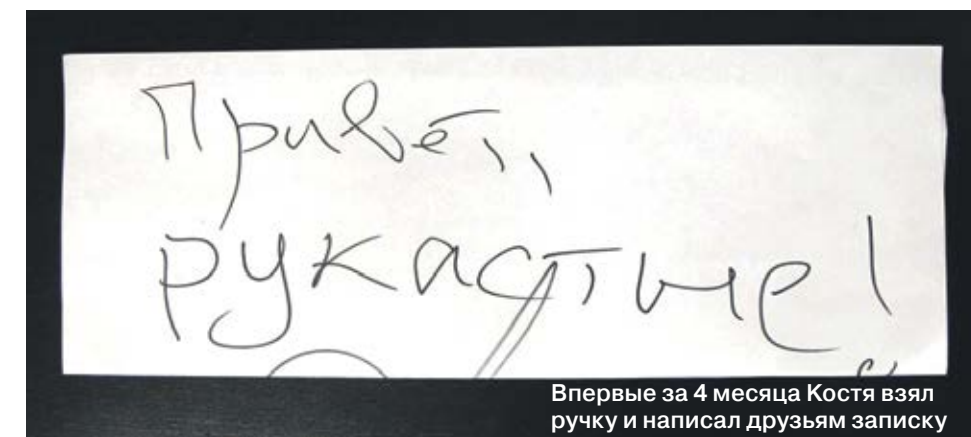 Привет,
рукастые!
Впервые за 4 месяца Костя взял
ручку и написал друзьям записку